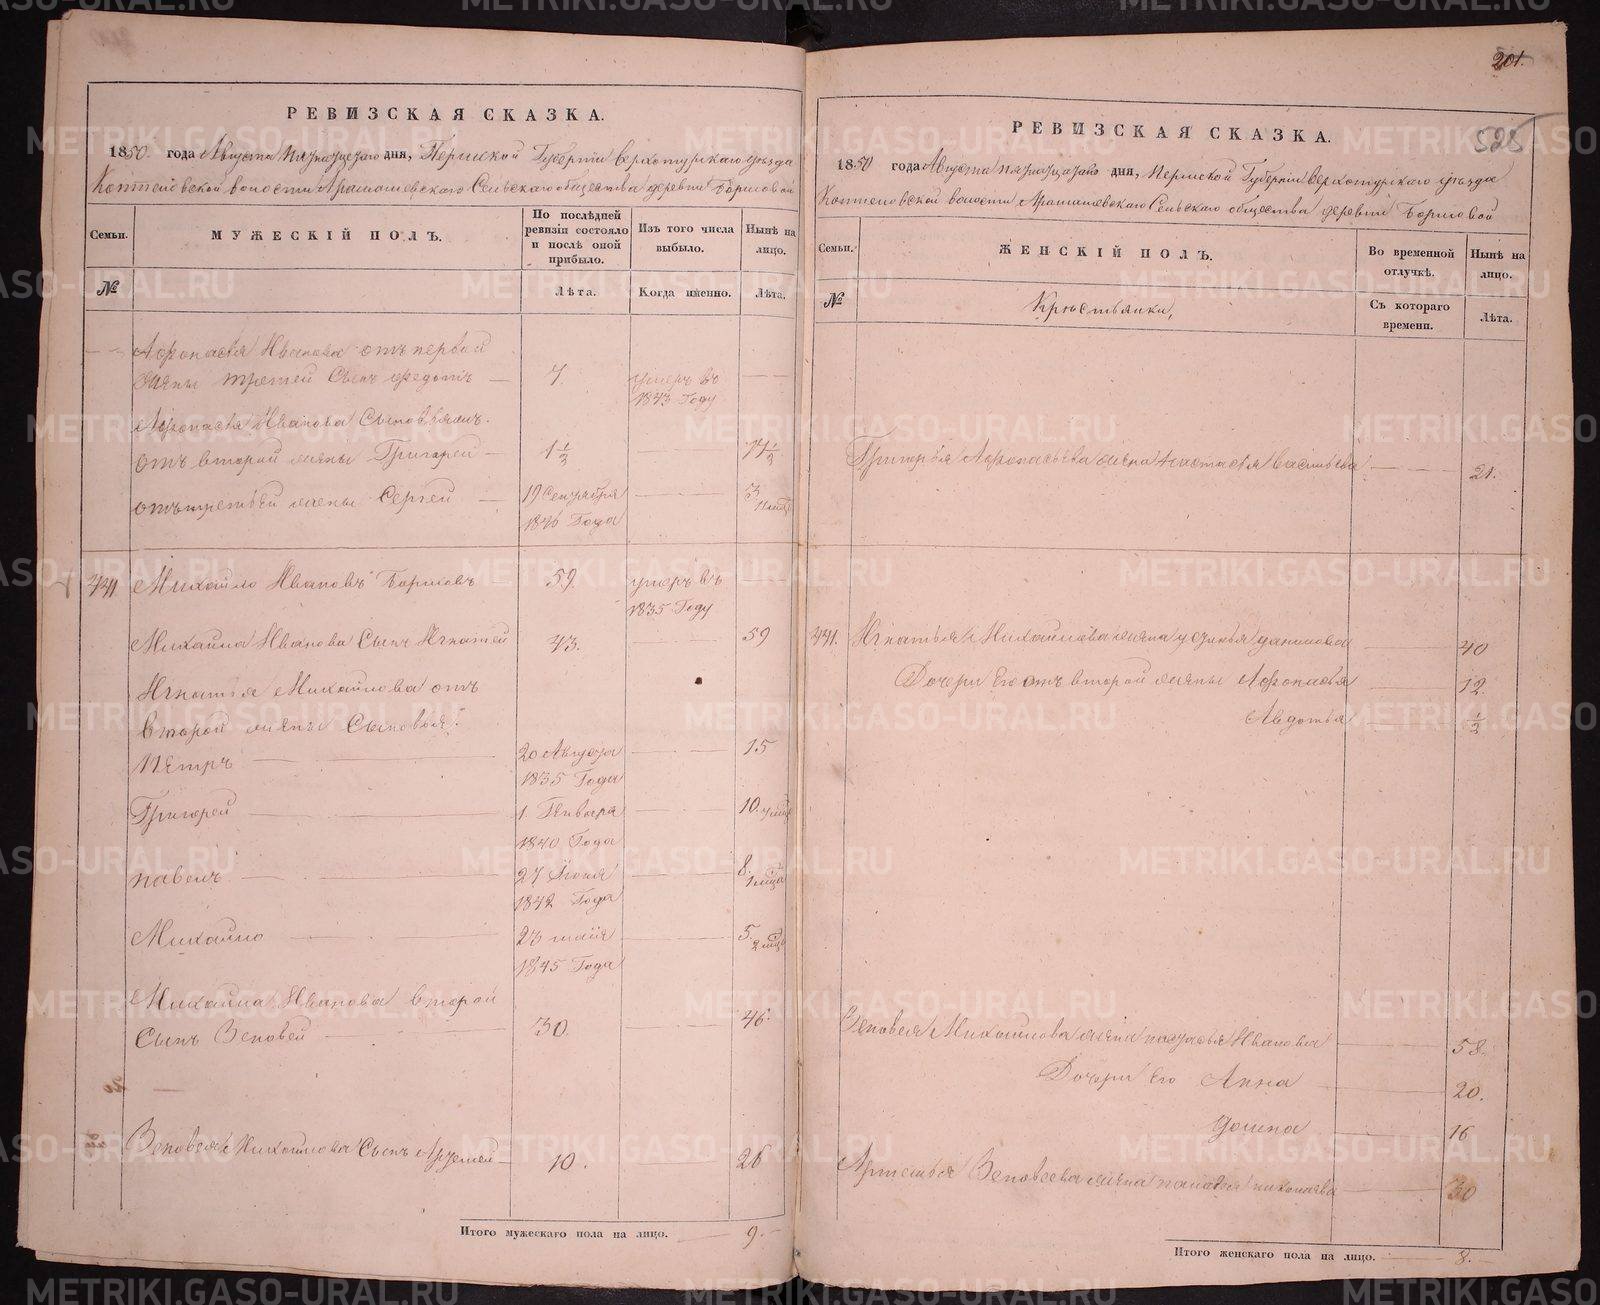 РЕВИЗСКАЯ СКАЗКА.
1850 года Августа пятнадцатаго дня, Пермской Губерніи Верхотурскаго уѣзда
Коптеловской волости Арамашевскаго Сельскаго общества деревни Борисовой
Семьи.
МУЖЕСКІЙ ПОЛЪ.
По послѣдней ревизіи состояло и послѣ оной прибыло.
Изъ того числа выбыло.
Нынѣ на лицо.
№
Лѣта.
Когда именно.
Лѣта.
Афонасья Иванова отъ первой
жены третей Сынъ Федотъ 7 умеръ въ 1843 Году
Афонасья Ивановa Сыновья
отъ второй жены Григорей 1½ 17½
отъ третьей жены Сергей 19 Сентября 1846 Года 3
441 Михайло Ивановъ Борисовъ 59 умеръ въ 1835 Году
Михайла Иванова Сынъ Игнатей 43. 59
Игнатья Михайлова отъ
второй жены Сыновья:
Петръ 20 Августа 1835 Года 15
Григорей 1 Генваря 1840 Года 10
павелъ 27 Июня 1842 Года 8
Михайло 23 майя 1845 Года 5
Михайла Иванова второй
Сынъ Зеновей 30. 46.
Зеновея Михайлова Сынъ Артемей 10. 26
Итого мужескаго пола на лицо. 9.
201.
525
РЕВИЗСКАЯ СКАЗКА.
1850 года Августа пятнадцатаго дня, Пермской Губерніи Верхотурскаго уѣзда
Коптеловской волости Арамашевскаго Сельскаго общества деревни Борисовой
Семьи.
ЖЕНСКІЙ ПОЛЪ.
Во временной отлучкѣ.
Нынѣ на лицо.
№
Крестьянки,
Съ котораго времени.
Лѣта.
Григорья Афонасьева жена Настасья Васильева 21.
441. Игнатья Михайлова жена Данилова 40
Дочери Его отъ второй жены Афонасья 12.
Авдотья ½
Зеновея Михайлова жена Иванова 58.
Дочери Его Анна 20.
16
Артемья Зеновеева жена николаева 30
Итого женскаго пола на лицо. 8.
METRIKI.GASO-URAL.RU